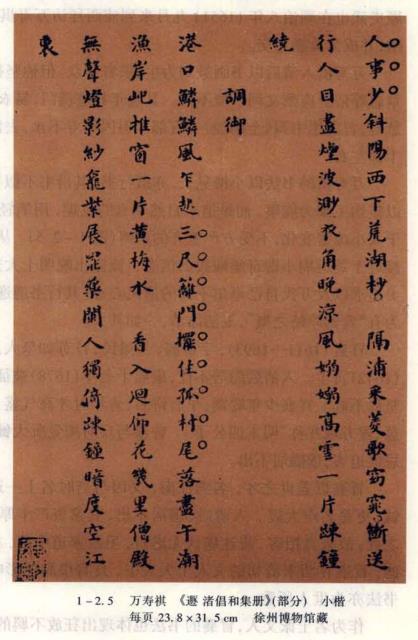 人事少斜陽西下荒湖杪 隔浦采菱歌窈窕斷送
行人目盡煙波渺衣角晚涼風嫋嫋高雲一片踈鐘
繞
調御
港口鱗鱗風乍起三尺籬門擺住孤村尾落盡午潮
漁岸圮推窗一片黃梅水 香入迴仰花幾里僧殿
無聲燈影紗龕紫展罷藥闌人獨倚踈鐘暗度空江
裏
1-2.5 万寿祺 《遯渚倡和集册》(部分) 小楷
每页 23.8×31.5cm 徐州博物馆藏